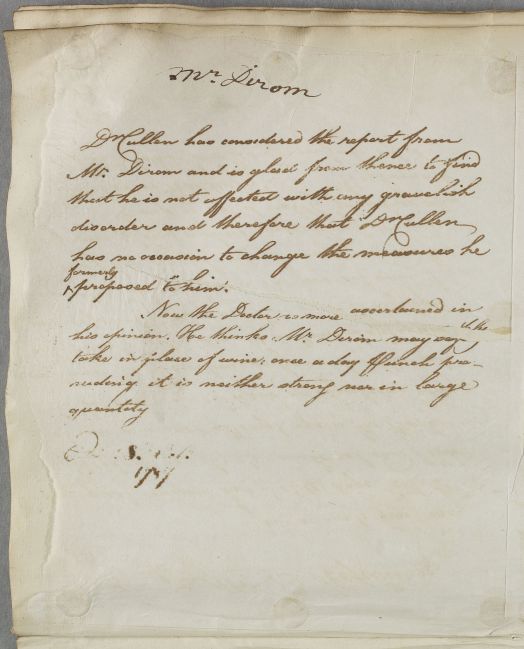 Mr. Dirom
Dr Cullen has considered the report from
Mr. Dirom and is glad from thence to find
that he is not affected with any gravelish
disorder and therefore that Dr Cullen
has no occasion to change the measures he
formerly
^proposed to him.
Now the Doctor is more ascertained in
his opinion. He thinks Mr. Dirom may
take in place of wine, once a day Punch pro-
viding it is neither strong nor in large
quantity